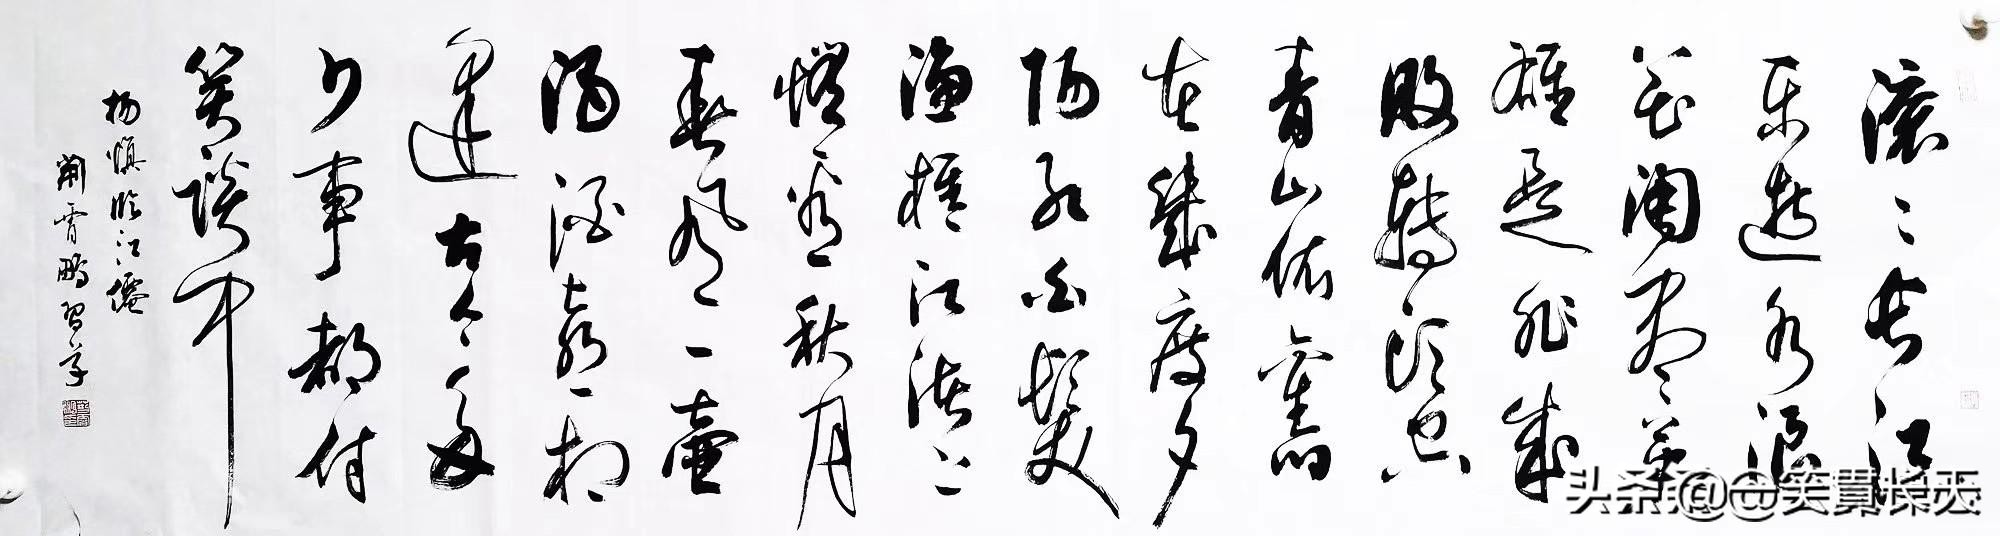 滚〻长江
东逝水浪
花淘尽英
雄是非成
败转头空
青山依舊
在幾度夕
阳红白髮
渔樵江渚上
惯看秋月
春风一壺
浊酒喜相
逢古今多
少事都付
笑谈中
杨慎临江僊
霄鹏習字
头条@